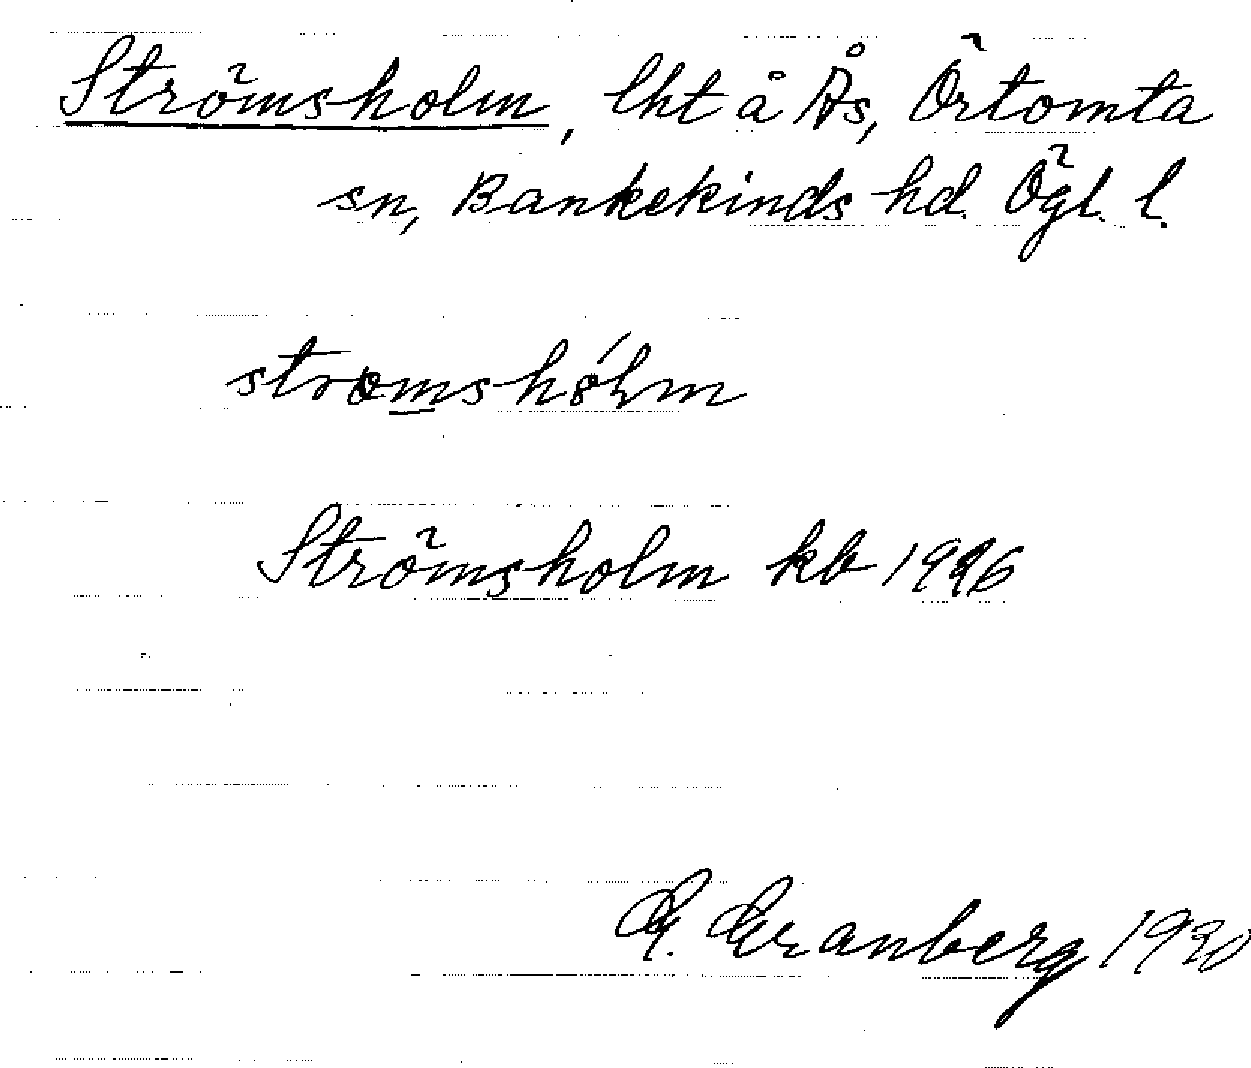 Strömsholm, lht å Ås, Örtomta
sn, Bankekinds hd. Ögl. l.
Strömsholm kb 1926
G. Granberg 1930